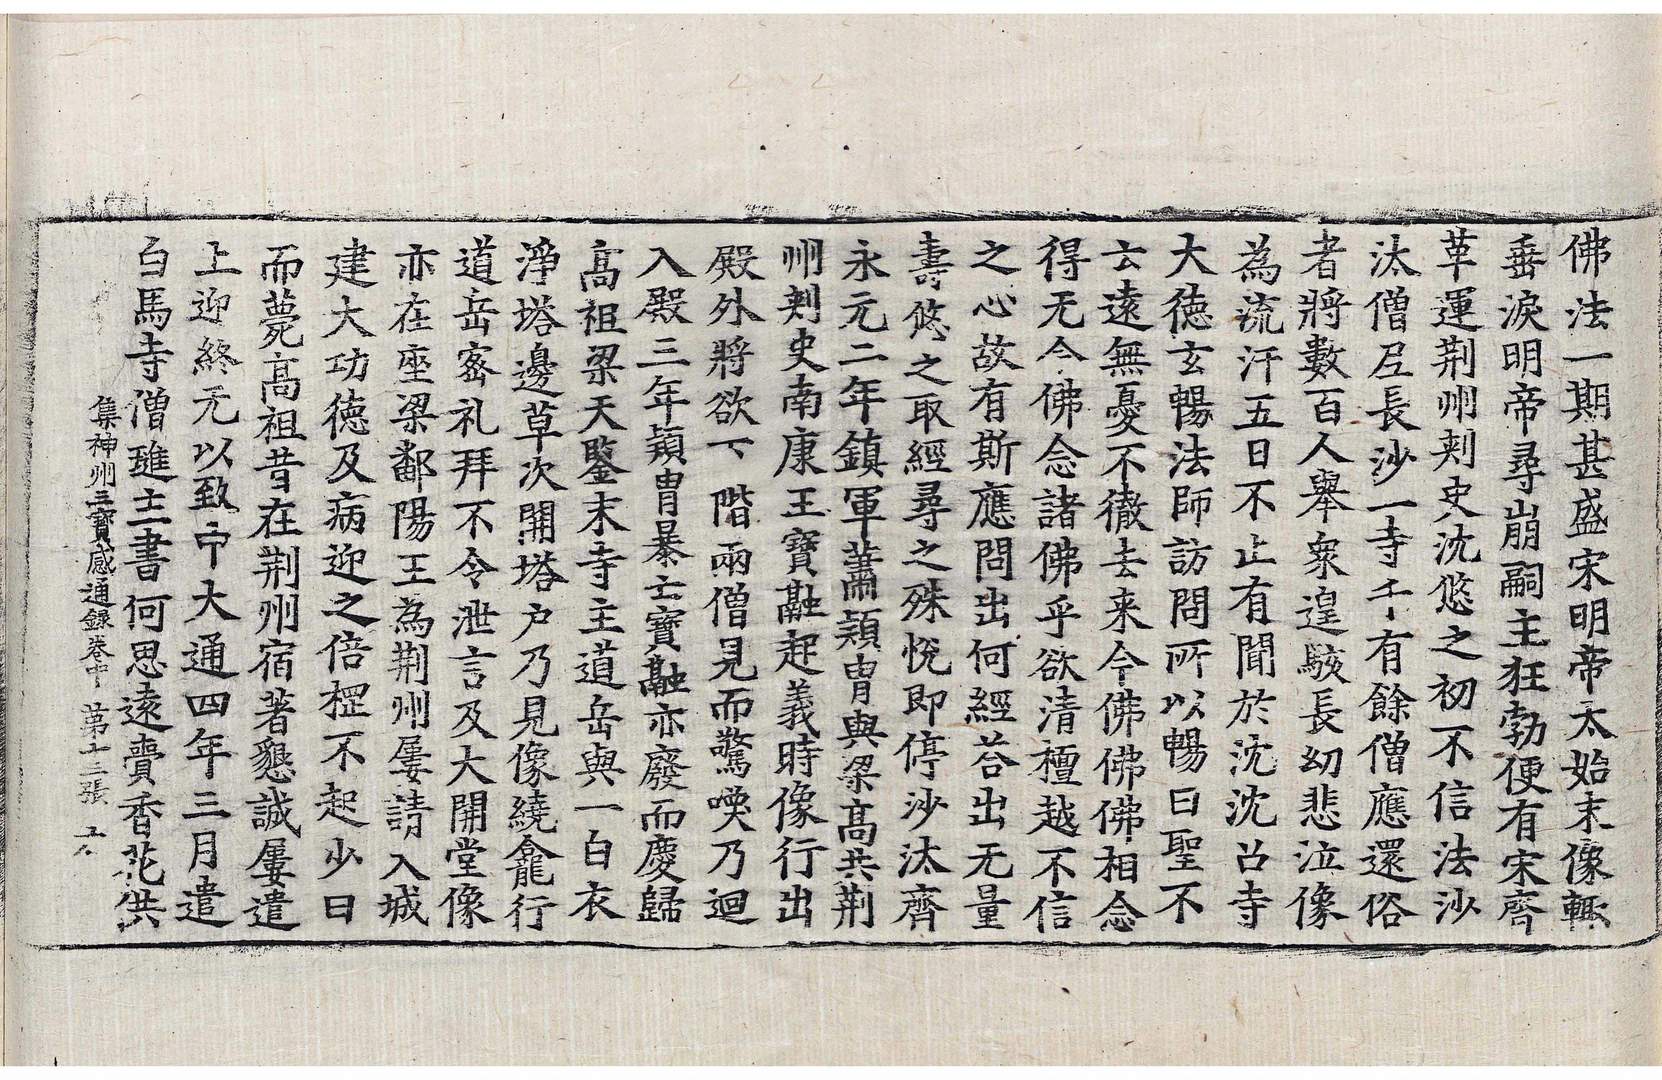 佛法一期甚盛宋明帝太始末像輙
垂淚明帝尋崩嗣主狂勃便有宋齊
革運荆州刾史沈悠之初不信法沙
汰僧尼長沙一寺千有餘僧應還俗
者將數百人舉衆遑駭長幼悲泣像
為流汗五日不止有聞於沈沈召寺
大德玄暢法師訪問所以暢曰聖不
云遠無憂不徹去来今佛佛佛相念
得无今佛念諸佛乎欲清檀越不信
之心故有斯應問出何經荅出无量
壽悠之取經尋之殊悅即停沙汰齊
永元二年鎮軍蕭頴胄與梁高共荆
州刾史南康王寶融起義時像行出
殿外將欲下階兩僧見而驚喚乃迴
入殿三年頴胄暴亡寶融亦廢而慶歸
高祖梁天鑒末寺主道岳與一白衣
淨塔邊草次開塔户乃見像繞龕行
道岳宻礼拜不令泄言及大開堂像
亦在座梁鄱陽王為荆州屢請入城
建大功德及病迎之倍㭏不起少日
而薨高祖昔在荆州宿著懇誠屢遣
上迎終无以致中大通四年三月遣
白馬寺僧璡主書何思遠賷香花供
集神州三寳感通録卷中 第十三張